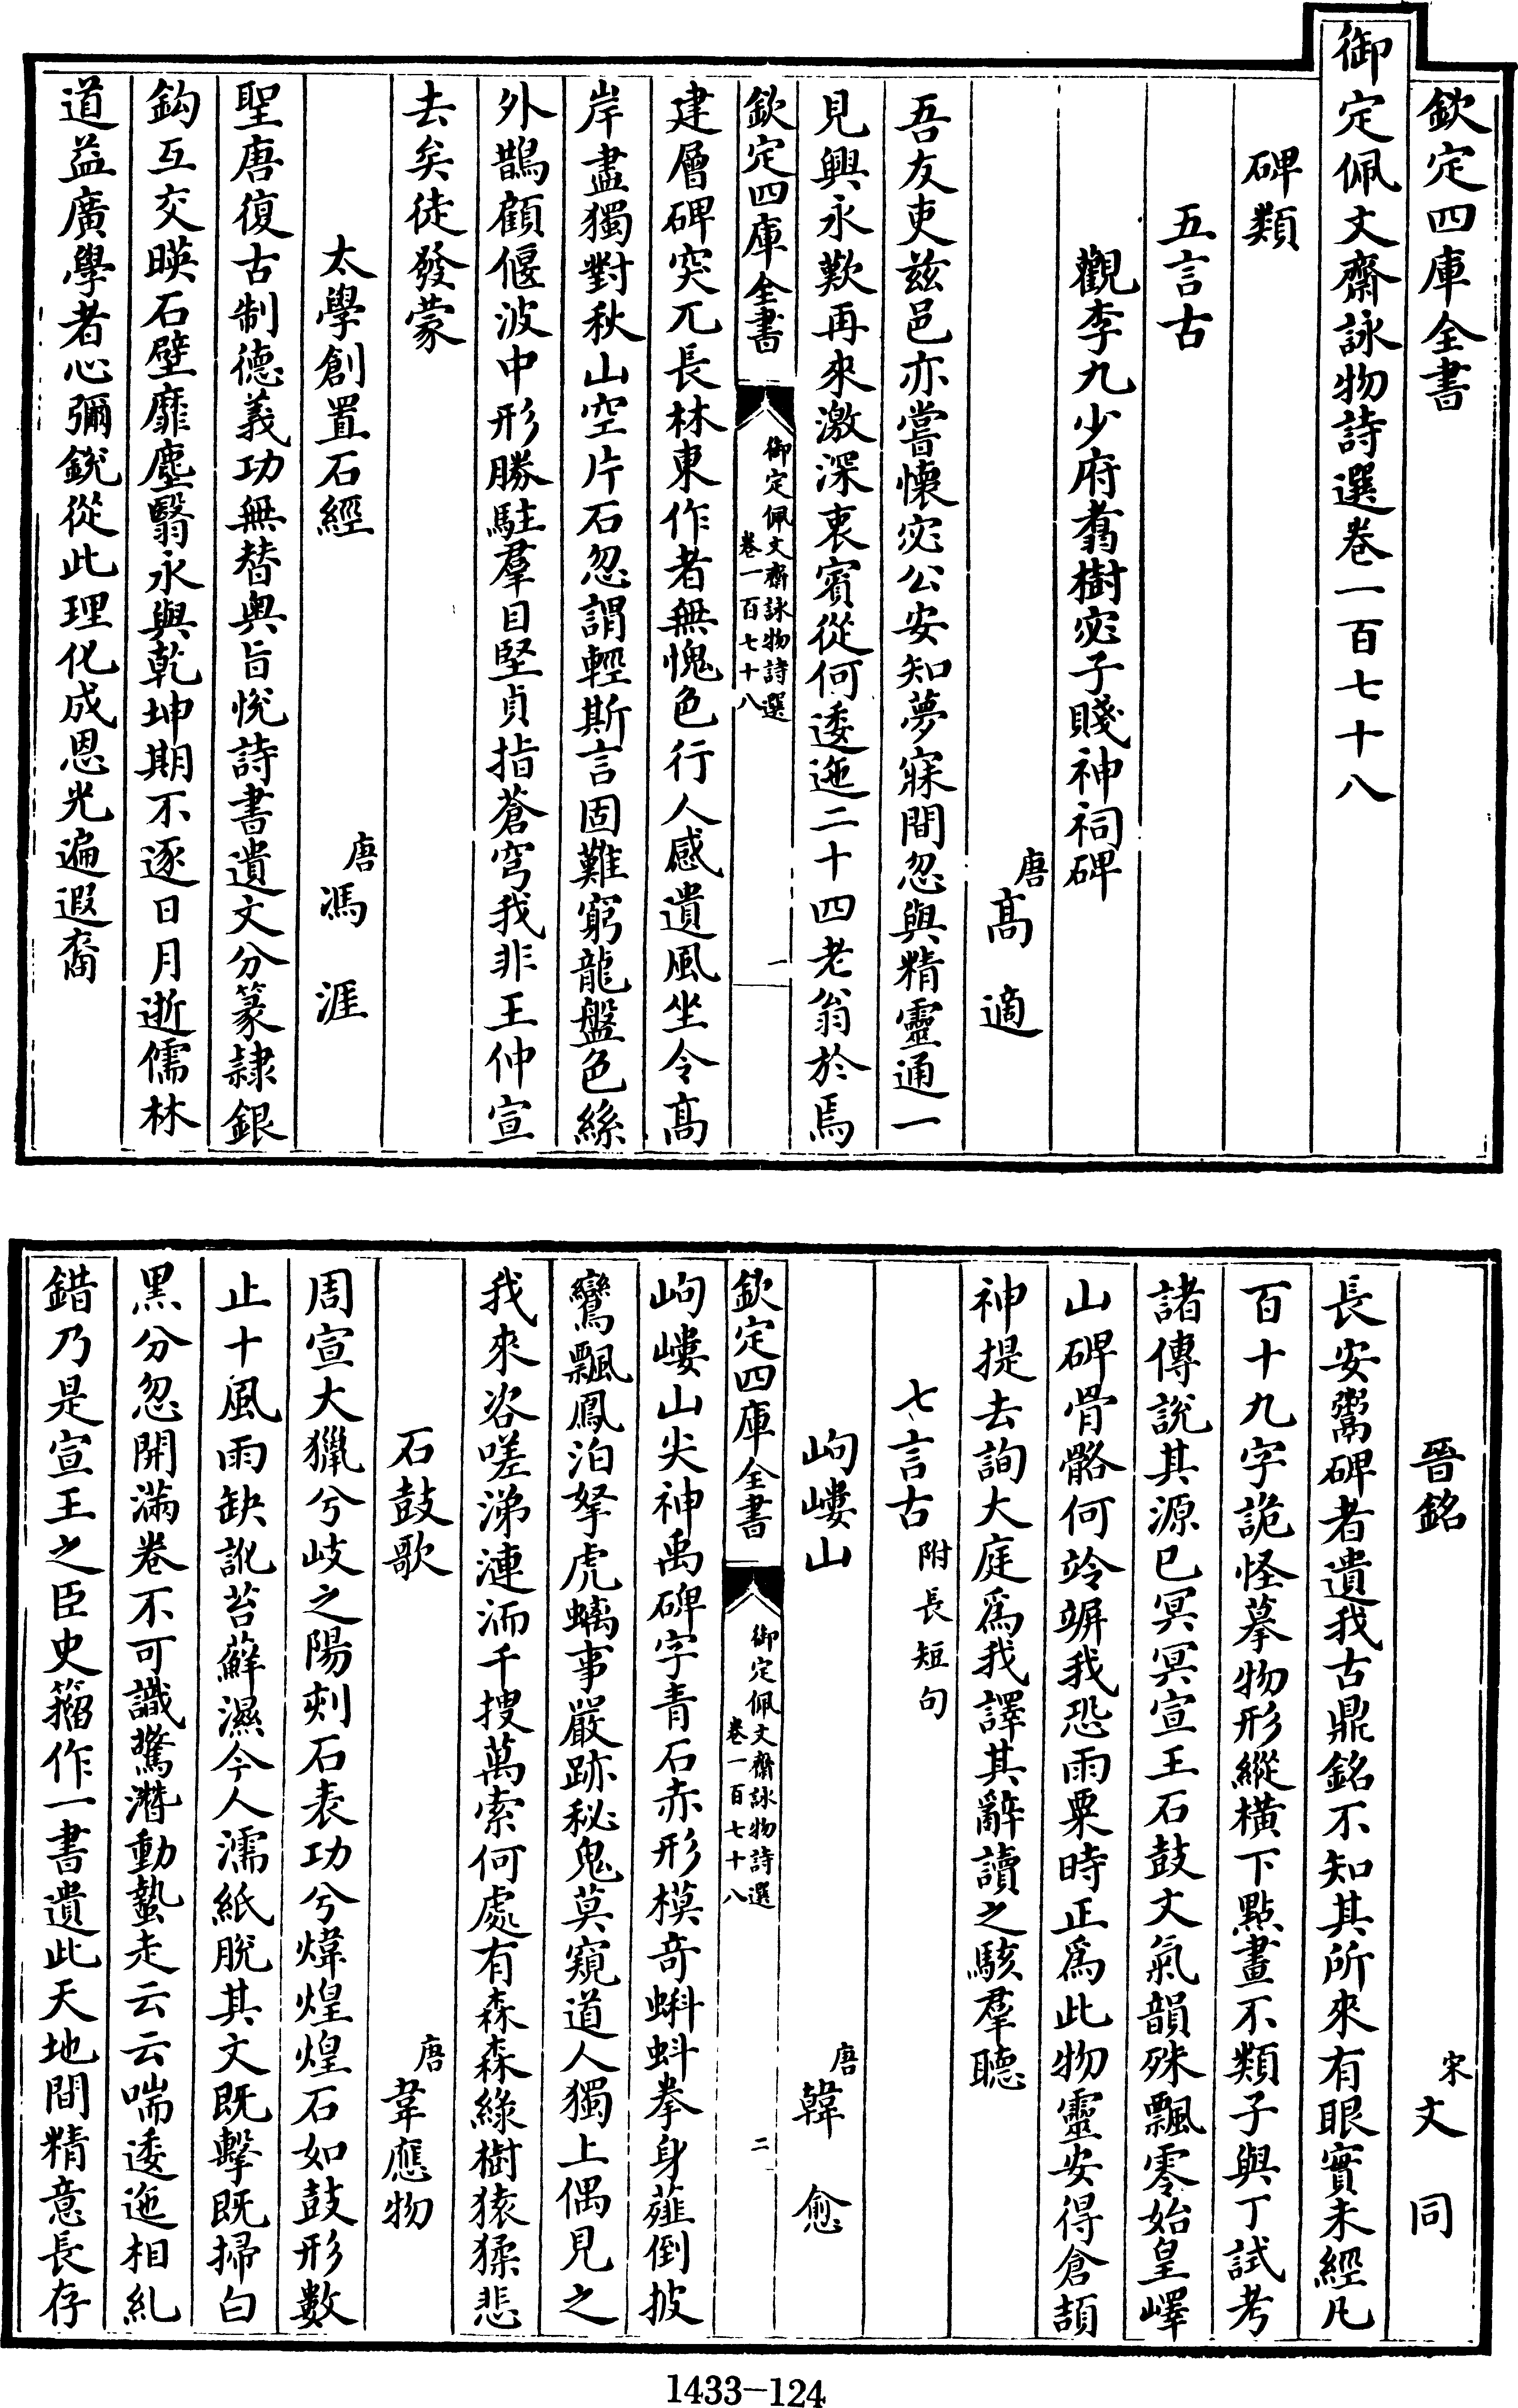 欽定四庫全書
御定佩文齋詠物詩選卷一百七十八
碑類
五言古
觀李九少府翥樹宓子賤神祠碑
唐髙適
吾友吏兹邑亦嘗懐宓公安知夢寐間忽與精靈通一
見興永歎再來激深衷賓從何逶迤二十四老翁於焉
欽定四庫全書
御定佩文齋詠物詩選
卷一百七十八
一
建層碑突兀長林東作者無愧色行人感遺風坐令髙
岸盡獨對秋山空片石忽謂輕斯言固難窮龍盤色絲
外鵲顧偃波中形勝駐羣目堅貞指蒼穹我非王仲宣
去矣徒發蒙
太學創置石經
唐馮涯
聖唐復古制德義功無替奥旨恱詩書遺文分篆隷銀
鈎互交暎石壁靡塵翳永與乾坤期不逐日月逝儒林
道益廣學者心彌銳從此理化成恩光遍遐裔
晉銘
宋文同
長安鬻碑者遺我古鼎銘不知其所來有眼實未經凡
百十九字詭怪摹物形縱横下點畫不類子與丁試考
諸傳説其源已冥冥宣王石鼓文氣韻殊飄零始皇嶧
山碑骨骼何竛竮我恐雨粟時正爲此物靈安得倉頡
神提去詢大庭爲我譯其辭讀之駭羣聽
七言古附長短句
岣嶁山
唐韓愈
欽定四庫全書
御定佩文齋詠物詩選
卷一百七十八
二
岣嶁山尖神禹碑字青石赤形模奇蝌蚪拳身薤倒披
鸞飄鳳泊拏虎螭事嚴跡秘鬼莫窺道人獨上偶見之
我來咨嗟涕漣洏千搜萬索何處有森森綠樹猿猱悲
石鼓歌
唐韋應物
周宣大獵兮岐之陽刻石表功兮煒煌煌石如鼓形數
止十風雨缺訛苔蘚濕今人濡紙脱其文既擊既掃白
黒分忽開滿卷不可識驚潛動蟄走云云喘逶迤相糺
錯乃是宣王之臣史籀作一書遺此天地間精意長存
1433-124